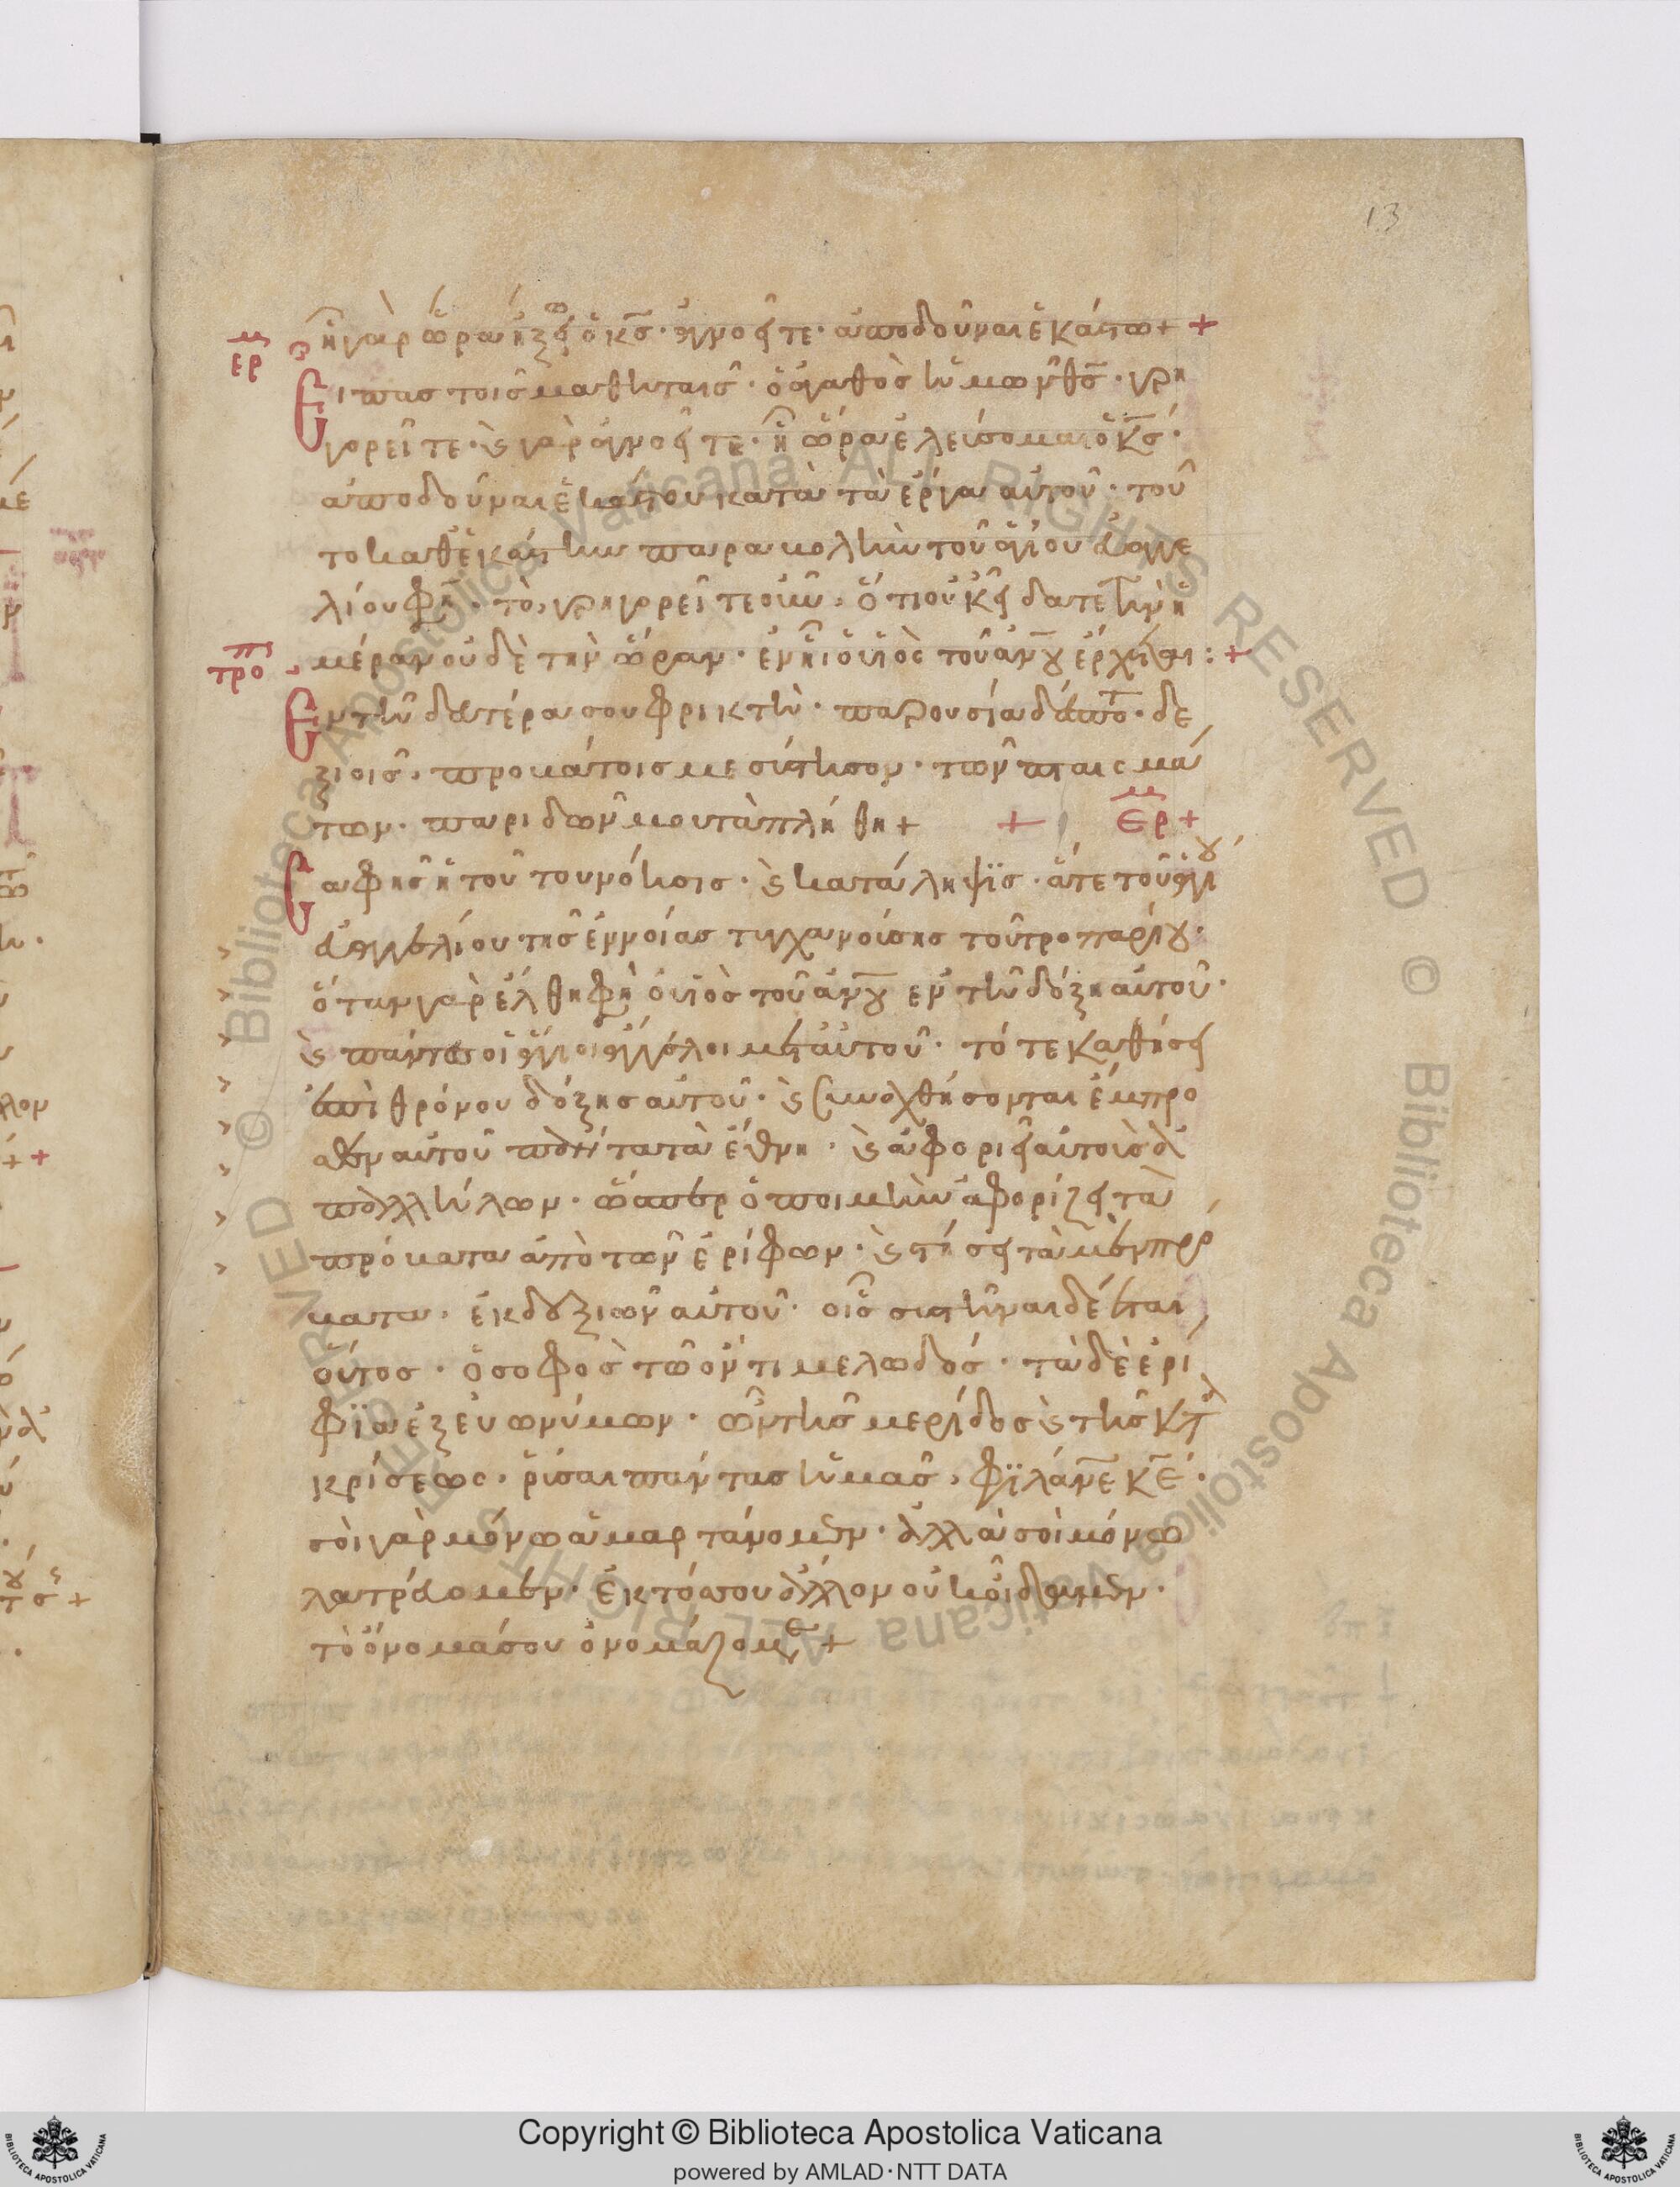 13
ἧ γὰρ ὥρα ἥξει ὁ κ̅ς̅· ἀγνοεῖτε· ἀποδοῦναι ἑκάστω + +
ερ
Εἶπας τοῖς μαθηταῖς· ὁ ἀγαθὸς ἡμῶν θ̅ς̅· γρη
γορεῖτε· ϗ γὰρ ἀγνοεῖτε· ἧ ὥρα ἐλεύσομαι ὁ κ̅ς̅·
ἀποδοῦναι ἑκάστου κατὰ τὰ ἔργα αὐτοῦ· τοῦ
το καθεκάστην παραινολὴν τοῦ ἁγίου εὐαγγε
λίου φη̅· τὸ, γρηγορεῖτε οὖν, ὅτι οὐκ εἴδατε τὴν ἡ
μέραν οὐδὲ τὴν ὥραν· ἐν ἧ ὁ υἱὸς τοῦ ἀν̅ου ἔρχεται : +
προ
Εν τῆ δευτέρα σου φρικτῆ· παρουσία δέσπο̅· δε
ξιοῖς, προβάτοις με σύστησον· τῶν πταισμά
των· παριδῶν μου τὰ πλήθη + + ερ +
Σαφὴς ἡ τούτου νόησις· ϗ κατάληψϊς· ἅτε τοῦ ἁγίου
εὐαγγελίου τῆς ἐννοίας τυγχανούσης τοῦ τροπαρίου·
ὅταν γὰρ ἔλθη φη̅ ὁ υἱὸς τοῦ ἀν̅ου ἐν τῆ δόξη αὐτοῦ·
ϗ πάντες οἱ ἅγιοι ἄγγελοι μετ' αὐτοῦ· τότε καθήσει
ἐπὶ θρόνου δόξης αὐτοῦ· ϗ συναχθήσονται ἔμπρο
σθεν αὐτοῦ πάντα τὰ ἔθνη· ϗ ἀφοριεῖ αὐτοὺς ἀ
π' ἀλλήλων· ὥσπερ ὁ ποιμὴν ἀφορίζει τὰ
πρόβατα ἀπὸ τῶν ἐρίφων· ϗ στήσει τὰ μὲν πρό
βατα, ἐκ δεξιῶν αὐτοῦ· οἷς συστῆναι δέεται
οὗτος· ὁ σοφὸς τῶ ὄντι μελωδός· τὰ δὲ ἐρί
φϊα ἐξ εὐωνύμων· ὧν τῆς μερίδος ϗ τῆς κατα
κρίσεως· ῥύσαι πάντας ἡμᾶς, φϊλάν̅ε κ̅ε̅·
σοὶ γὰρ μόνω ἁμαρτάνομεν· ἀλλὰ σοὶ μόνω
λατρεύομεν· ἐκτός σου ἄλλον οὐκ οἴδαμεν·
τὸ ὄνομά σου ὀνομάζομεν +
Copyright © Biblioteca Apostolica Vaticana
powered by AMLAD·NTT DATA